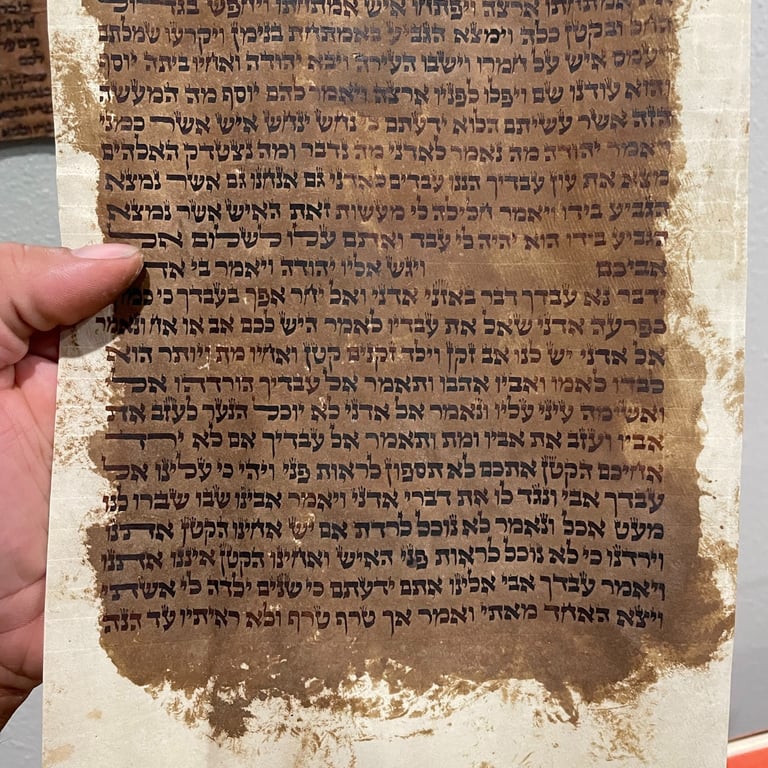 אמתחתו ארצה ויפתחו איש אמתחתו ויחפש בגדול
החל ובקטן כלה וימצא הגביע באמתחת בנימן ויקרעו שמלתם
ויעמס איש על חמרו וישבו העירה ויבא יהודה ואחיו ביתה יוסף
והוא עודנו שם ויפלו לפניו ארצה ויאמר להם יוסף מה המעשה
הזה אשר עשיתם הלוא ידעתם כי נחש ינחש איש אשר כמני
ויאמר יהודה מה נאמר לאדני מה נדבר ומה נצטדק האלהים
מצא את עון עבדיך הננו עבדים לאדני גם אנחנו גם אשר נמצא
הגביע בידו ויאמר חלילה לי מעשות זאת האיש אשר נמצא
הגביע בידו הוא יהיה לי עבד ואתם עלו לשלום אל
אביכם ויגש אליו יהודה ויאמר בי אדני
ידבר נא עבדך דבר באזני אדני ואל יחר אפך בעבדך כי כמוך
כפרעה אדני שאל את עבדיו לאמר היש לכם אב או אח ונאמר
אל אדני יש לנו אב זקן וילד זקנים קטן ואחיו מת ויותר הוא
לבדו לאמו ואביו אהבו ותאמר אל עבדיך הורדהו אלי
ואשימה עיני עליו ונאמר אל אדני לא יוכל הנער לעזב את
אביו ועזב את אביו ומת ותאמר אל עבדיך אם לא ירד
אחיכם הקטן אתכם לא תספון לראות פני ויהי כי עלינו אל
עבדך אבי ונגד לו את דברי אדני ויאמר אבינו שבו שברו לנו
מעט אכל ונאמר לא נוכל לרדת אם יש אחינו הקטן אתנו
וירדנו כי לא נוכל לראות פני האיש ואחינו הקטן איננו אתנו
ויאמר עבדך אבי אלינו אתם ידעתם כי שנים ילדה לי אשתי
ויצא האחד מאתי ואמר אך טרף טרף ולא ראיתיו עד הנה